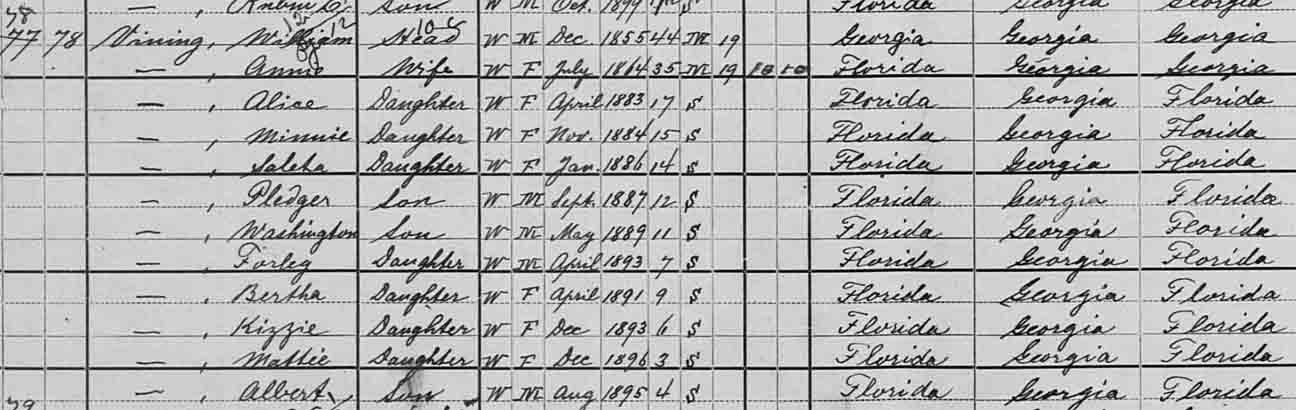 58 Son W M Oct. 1899 S Florida Georgia Georgia
77 78 Vining, William Head W M Dec. 1855 44 M 19 Georgia Georgia Georgia
— , Annie Wife W F July 1864 35 M 19 10 10 Florida Georgia Georgia
— , Alice Daughter W F April 1883 17 S Florida Georgia Florida
— , Minnie Daughter W F Nov. 1884 15 S Florida Georgia Florida
— , Saleta Daughter W F Jan. 1886 14 S Florida Georgia Florida
— , Pledger Son W M Sept. 1887 12 S Florida Georgia Florida
— , Washington Son W M May 1889 11 S Florida Georgia Florida
— , Forleg Daughter W M April 1893 7 S Florida Georgia Florida
— , Bertha Daughter W F April 1891 9 S Florida Georgia Florida
— , Kizzie Daughter W F Dec 1893 6 S Florida Georgia Florida
— , Mattie Daughter W F Dec 1896 3 S Florida Georgia Florida
— , Albert Son W M Aug 1895 4 S Florida Georgia Florida